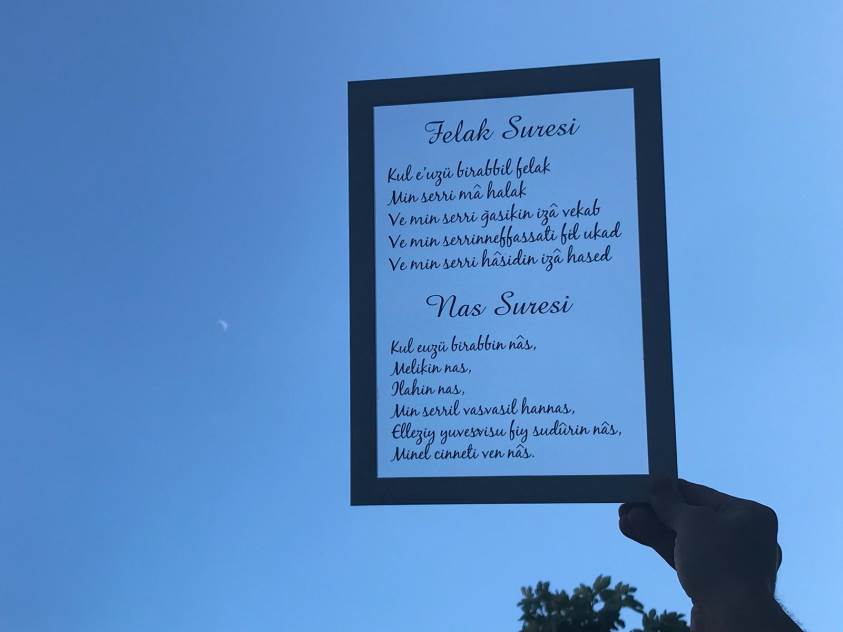 Felak Suresi
Kul e'uzü birabbil felak
Min serri mâ halak
Ve min serri ğasikin izâ vekab
Ve min serrinneffassati fil ukad
Ve min serri hâsidin izâ hased
Nas Suresi
Kul euzü birabbin nâs,
Melikin nas,
Ilahin nas,
Min serril vasvasil hannas,
Elleziy yuvesvisu fiy sudûrin nâs,
Minel cinneti ven nâs.